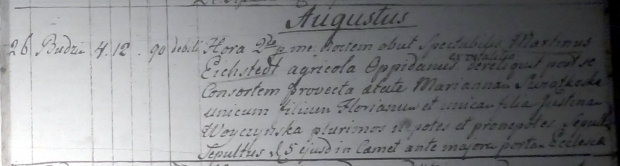 Augustus
26 Budzi 4.12. 90 debili Hora 2da me noctem obiit Spectabilis Martinus
Eichstedt agricola Oppidanus reliquit post se
Consortem provecta ætate Marianna
unicum filium Florianum et unica filia Justina
Woyczynska plurimos nepotes et pronepotes
Sepultus ejusd in Camet ante majore porta Ecclesia